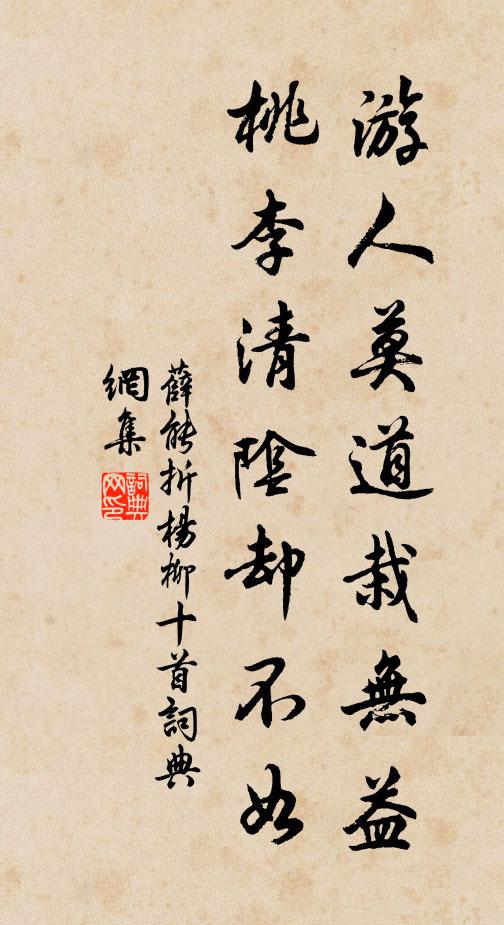 游人莫道栽無益
桃李清陰却不如
薛能折楊柳十首詞典
網集
詞典
网印